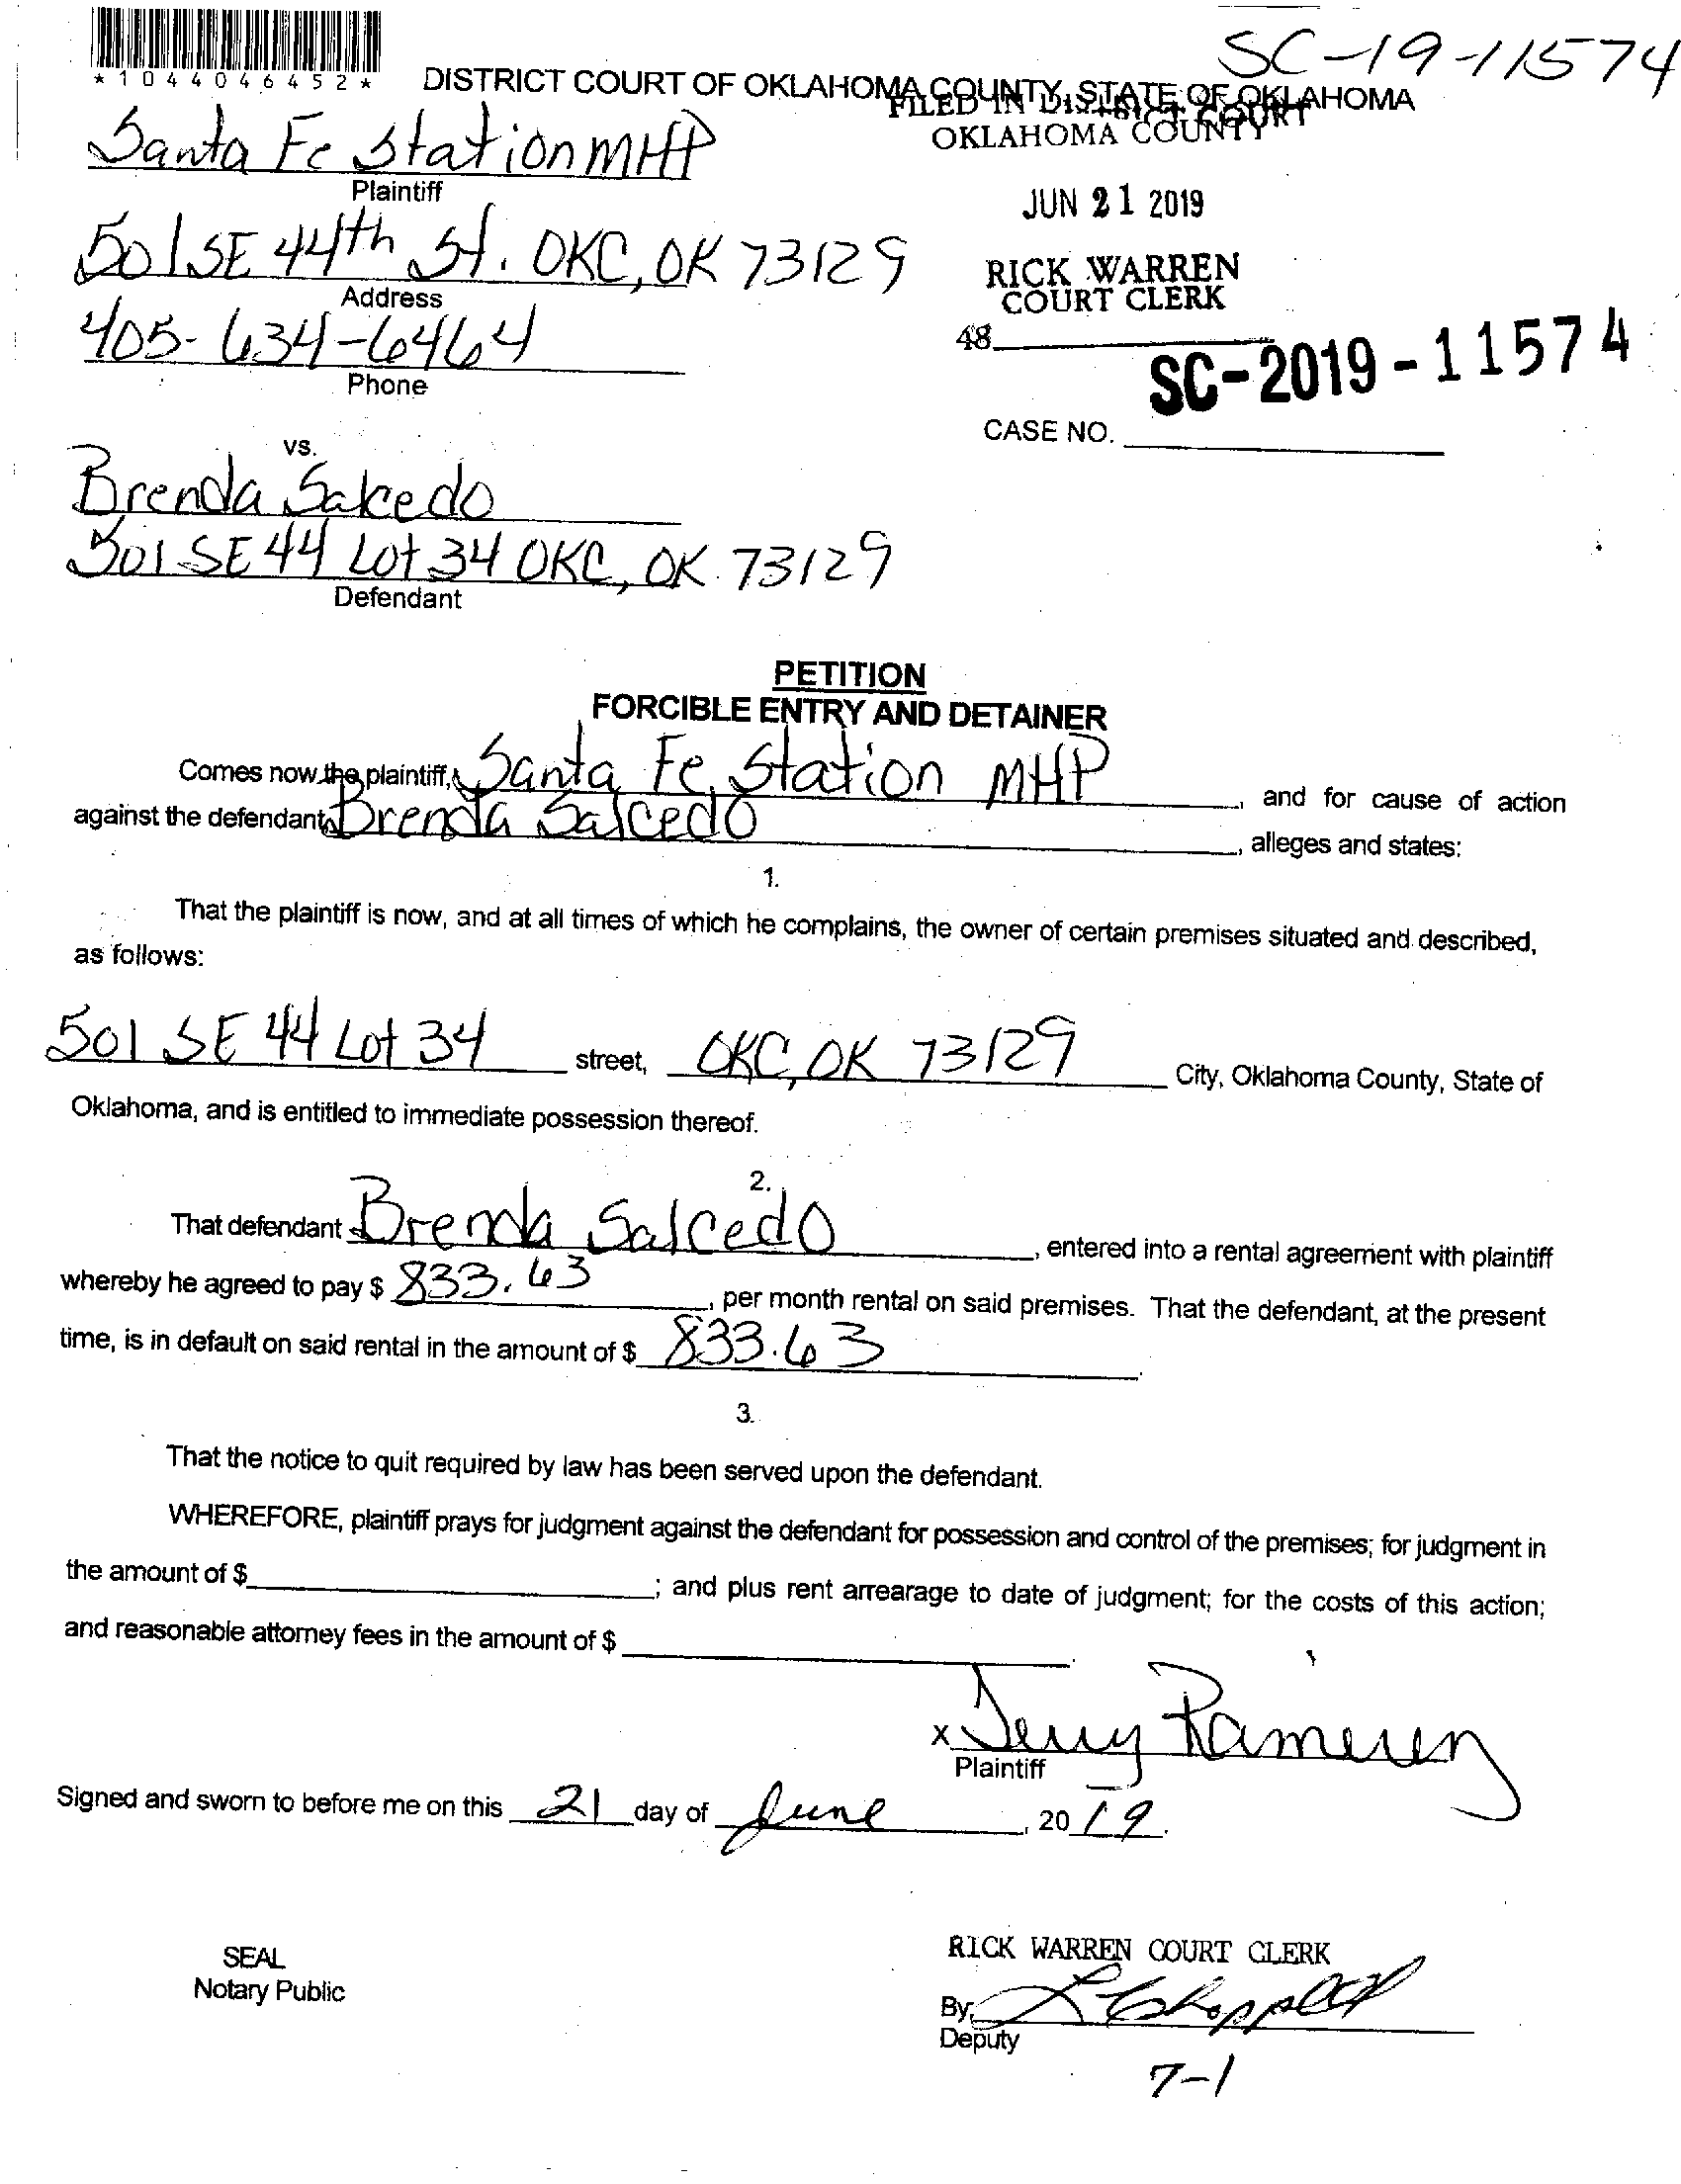 SC-19-11574
*1044046452*
DISTRICT COURT OF OKLAHOMA COUNTY, STATE OF OKLAHOMA
FILED IN DISTRICT COURT
OKLAHOMA COUNTY
Santa Fe Station MHP
Plaintiff
JUN 21 2019
501 SE 44th St. OKC, OK 73129
Address
RICK WARREN
COURT CLERK
405-634-6464
Phone
48
SC-2019-11574
CASE NO.
vs.
Brenda Salcedo
501 SE 44 Lot 34 OKC, OK 73129
Defendant
PETITION
FORCIBLE ENTRY AND DETAINER
Comes now the plaintiff, Santa Fe Station MHP, and for cause of action
against the defendant, Brenda Salcedo, alleges and states:
1.
That the plaintiff is now, and at all times of which he complains, the owner of certain premises situated and described,
as follows:
501 SE 44 Lot 34 street, OKC, OK 73129 City, Oklahoma County, State of
Oklahoma, and is entitled to immediate possession thereof.
2.
That defendant Brenda Salcedo, entered into a rental agreement with plaintiff
whereby he agreed to pay $ 833.63, per month rental on said premises. That the defendant, at the present
time, is in default on said rental in the amount of $ 833.63.
3.
That the notice to quit required by law has been served upon the defendant.
WHEREFORE, plaintiff prays for judgment against the defendant for possession and control of the premises; for judgment in
the amount of $ ; and plus rent arrearage to date of judgment; for the costs of this action;
and reasonable attorney fees in the amount of $ .
x Jerry Ramirez
Plaintiff
Signed and sworn to before me on this 21 day of June, 2019.
SEAL
Notary Public
RICK WARREN COURT CLERK
By,
Deputy
7-1